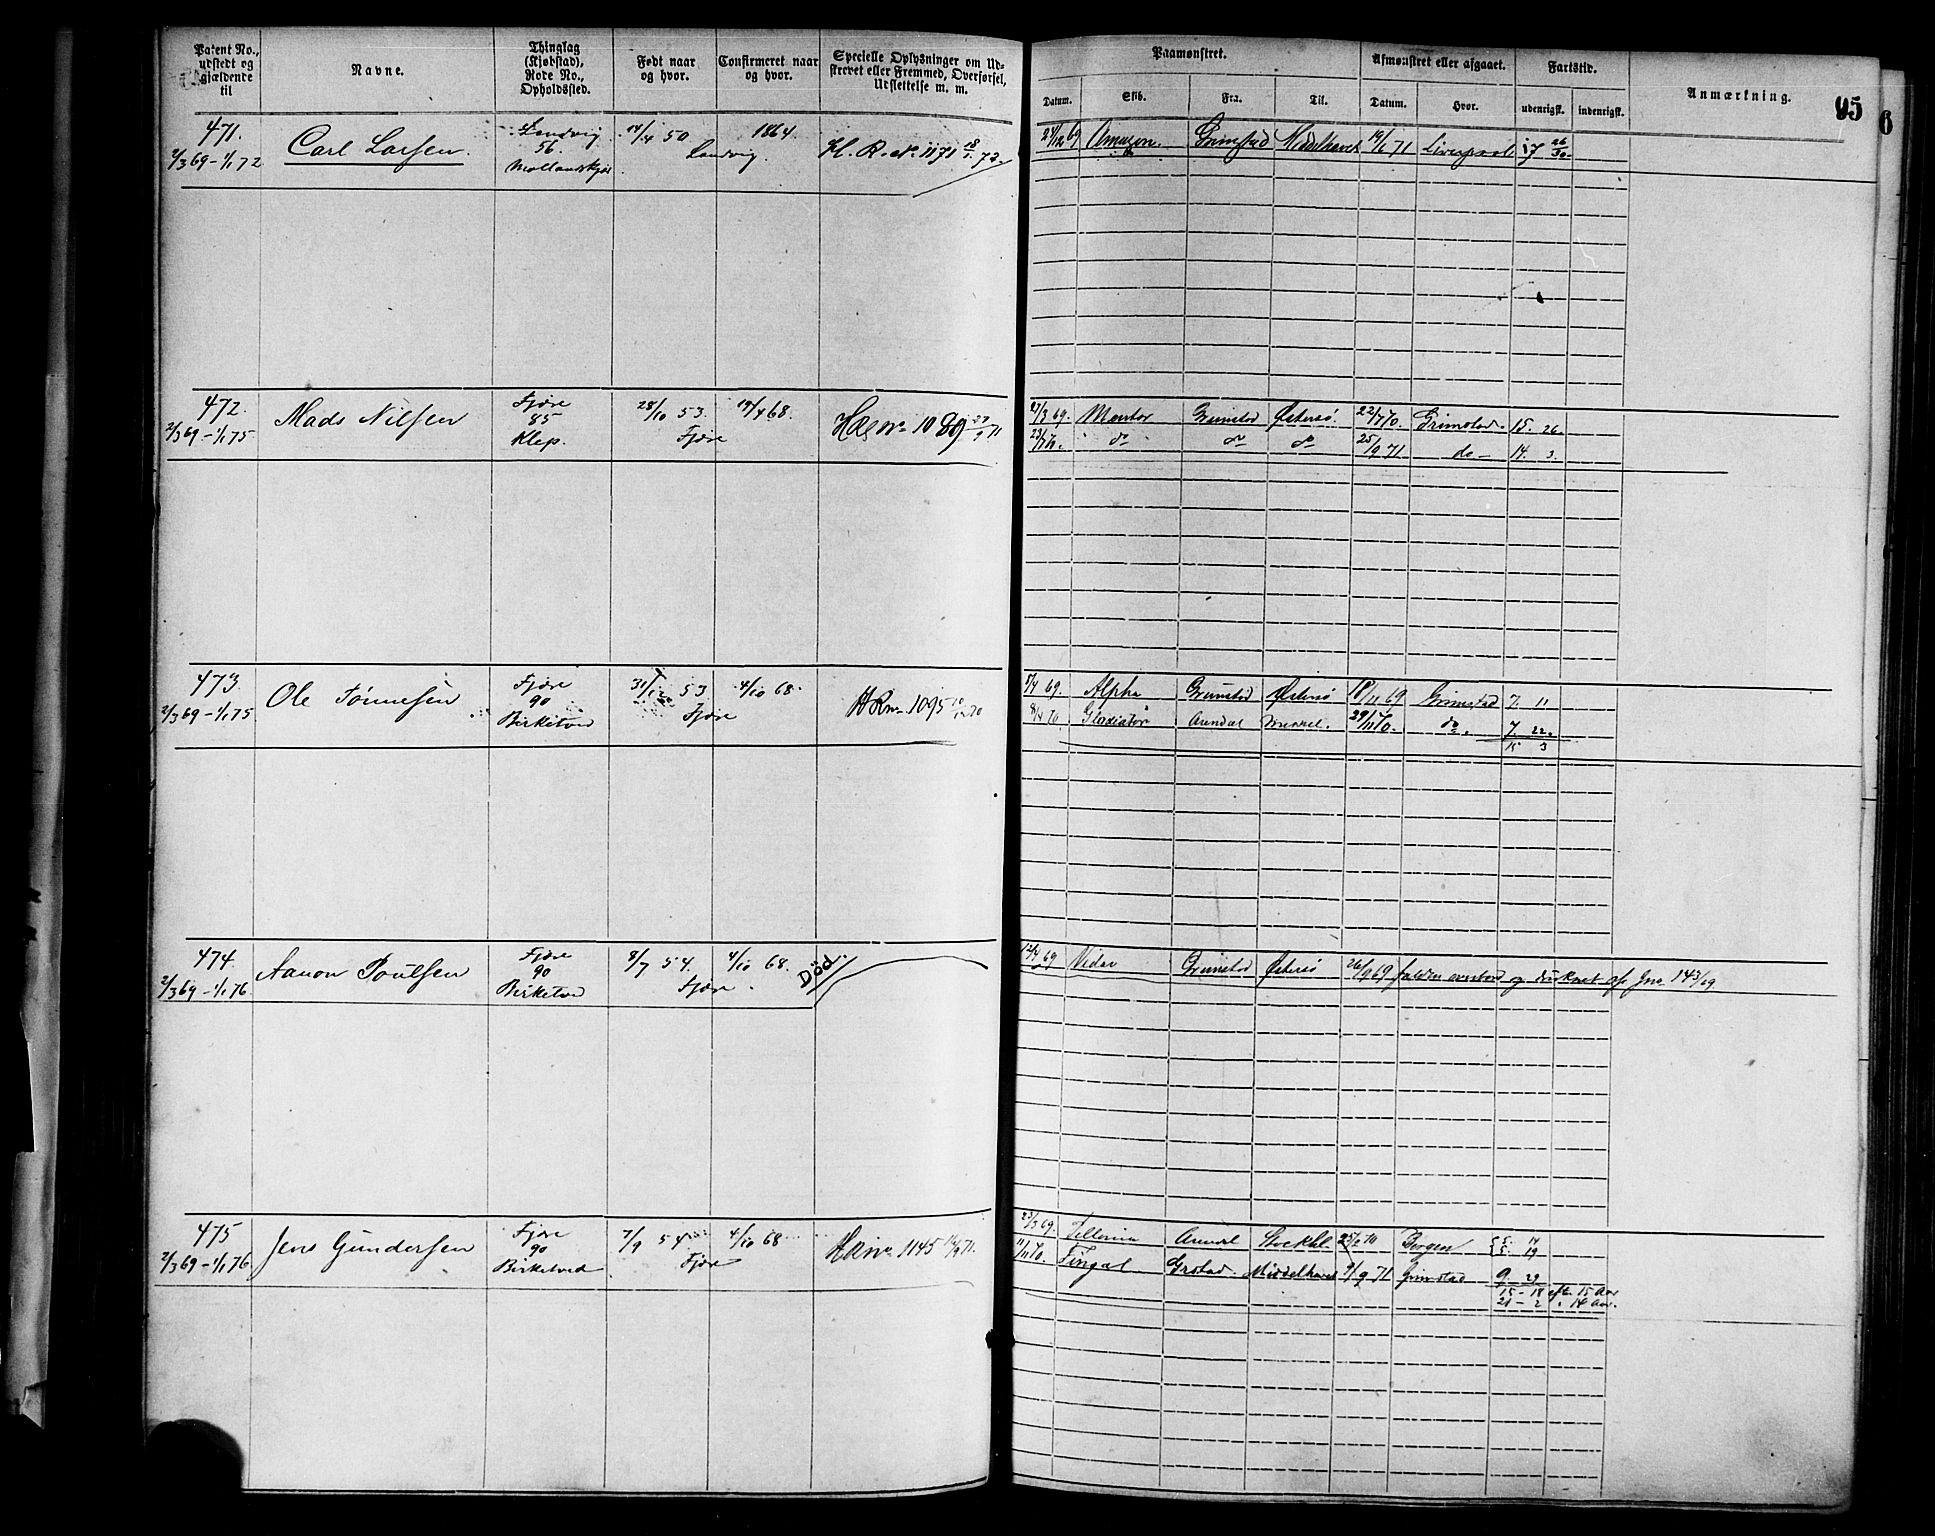 Patent No., udstedt og gjældende til
Navne.
Thinglag (Kjøbstad), Rode No., Opholdssted.
Født naar og hvor.
Confirmeret naar og hvor.
Specielle Oplysninger om Udskrevet eller Fremmed, Overførsel, Udslettelse m. m.
Paamønstret.
Afmønstret eller afgaaet.
Fartstid.
Anmærkning.
95
6
Datum.
Skib.
Fra.
Til.
Datum.
Hvor.
udenrigsk.
indenrigsk.
471.
2/3 69 – 1/1 72
Carl Larsen.
Landvig
56.
14/4 50
Landvig.
1864.
H. R. No. 1171 18/1 72.
24/12 69
Amazon
Grimstad
Middelhavet
19/6 71
Liverpool
17 26/30
472.
2/3 69 – 1/1 75.
Mads Nilsen
Fjære
85
Klep.
28/10 53.
Fjære
19/4 68.
1089 27/9 71
27/3 69. Mentor Grimstad Østersø. 22/7 70. Grimstad. 15. 26.
23/7 70. do do do 25/9 71 do – 14. 3.
473.
2/3 69 – 1/1 75
Ole Tønnesen
Fjære
90
Birketved
31/12 53
Fjære
4/10 68.
HR no 1095 10/12 70
5/4 69. Alpha Grimstad Østersø 18/11 69 Grimstad 7. 11
8/4 70 Gladiatør Arendal 29/11 70. do. 7. 22.
15 3
474.
2/3 69 – 1/1 76.
Aanon Poulsen
Fjære
90
Birketved
8/7 54.
Fjære.
4/10 68.
Död.
12/4 69 Vidar Grimstad Østersø 26/9 69 falden overbord og druknet
143/69
475
2/3 69 – 1/1 76
Jens Gundersen
Fjære
90
Birketved
7/9 54
Fjære
4/10 68
1145 14/9 71.
23/3 69. Arendal Stockhl. Bergen 5. 14
5. 19
11/11 70. Fingal Grstad. Middelhavet 9/9 71 Grimstad 9. 29
15 – 18 eft. 15 Aar
21 – 2 " 14 Aar.